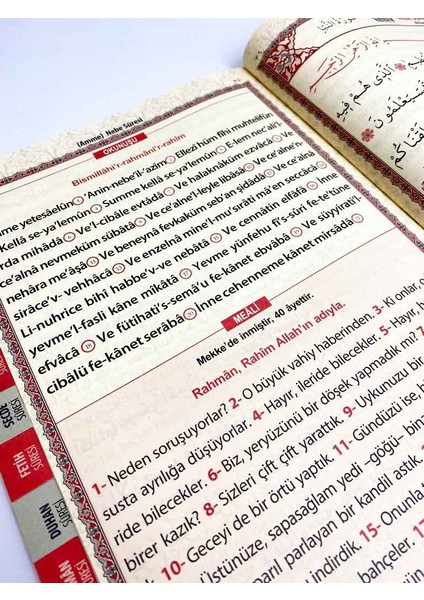 (Amme) Nebe Sûresi
OKUNUŞU
Bismillâhi'r-rahmâni'r-rahîm
me yetesâelûn 1 'Anin-nebe'i-l'azîm 2 Ellezî hüm fîhi muhtelifûn
Kellâ se-ya'lemûn 4 Summe kellâ se-ya'lemûn 5 E-lem nec'ali'l
rda mihâdâ 6 Ve'l-cibâle evtâdâ 7 Ve halaknâküm ezvâcâ 8 Ve
ce'alnâ nevmeküm sübâtâ 9 Ve ce'alne'l-leyle libâsâ 10 Ve ce'alne'n
nehâra me'âşâ 11 Ve beneynâ fevkaküm seb'an şidâdâ 12 Ve ce'alnâ
sirâce'v-vehhâcâ 13 Ve enzelnâ mine'l-mu'sırâti mâ'en seccâcâ 14
Li-nuhrice bihî habbe'v-ve nebâtâ 15 Ve cennâtin elfâfâ 16 İnne
yevme'l-fasli kâne mîkâtâ 17 Yevme yünfehu fi's-sûri fe-te'tûne
efvâcâ 18 Ve fütihati's-semâ'u fe-kânet ebvâbâ 19 Ve süyyirati'l-
cibâlü fe-kânet serâbâ 20 İnne cehenneme kânet mirsâdâ
MEALİ
Mekke'de inmiştir. 40 âyettir.
Rahmân, Rahîm Allah'ın adıyla.
1- Neden soruşuyorlar? 2- O büyük vahiy haberinden. 3- Ki onlar, o
susta ayrılığa düşüyorlar. 4- Hayır, ileride bilecekler. 5- Hayır,
ride bilecekler. 6- Biz, yeryüzünü bir döşek yapmadık mı?
birer kazık? 8- Sizleri çift çift yarattık. 9- Uykunuzu bir
10- Geceyi de bir örtü yaptık. 11- Gündüzü ise,
Üstünüze, sapasağlam yedi -göğü- bin
parıl parlayan bir kandil astık
indirdik. 15-
bahçeler. 17- Onunla
SECDE
SÛRESİ
FETİH
SÛRESİ
DUHAN
SÛRESİ